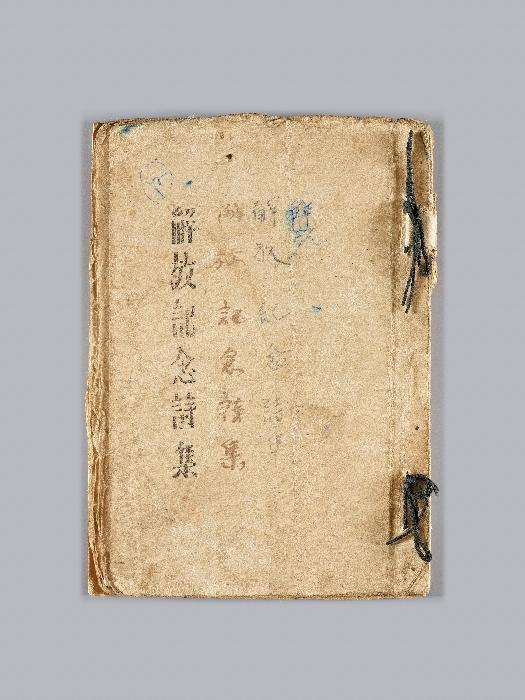 解放
解放紀念詩集
解放記念集
解放記念詩集